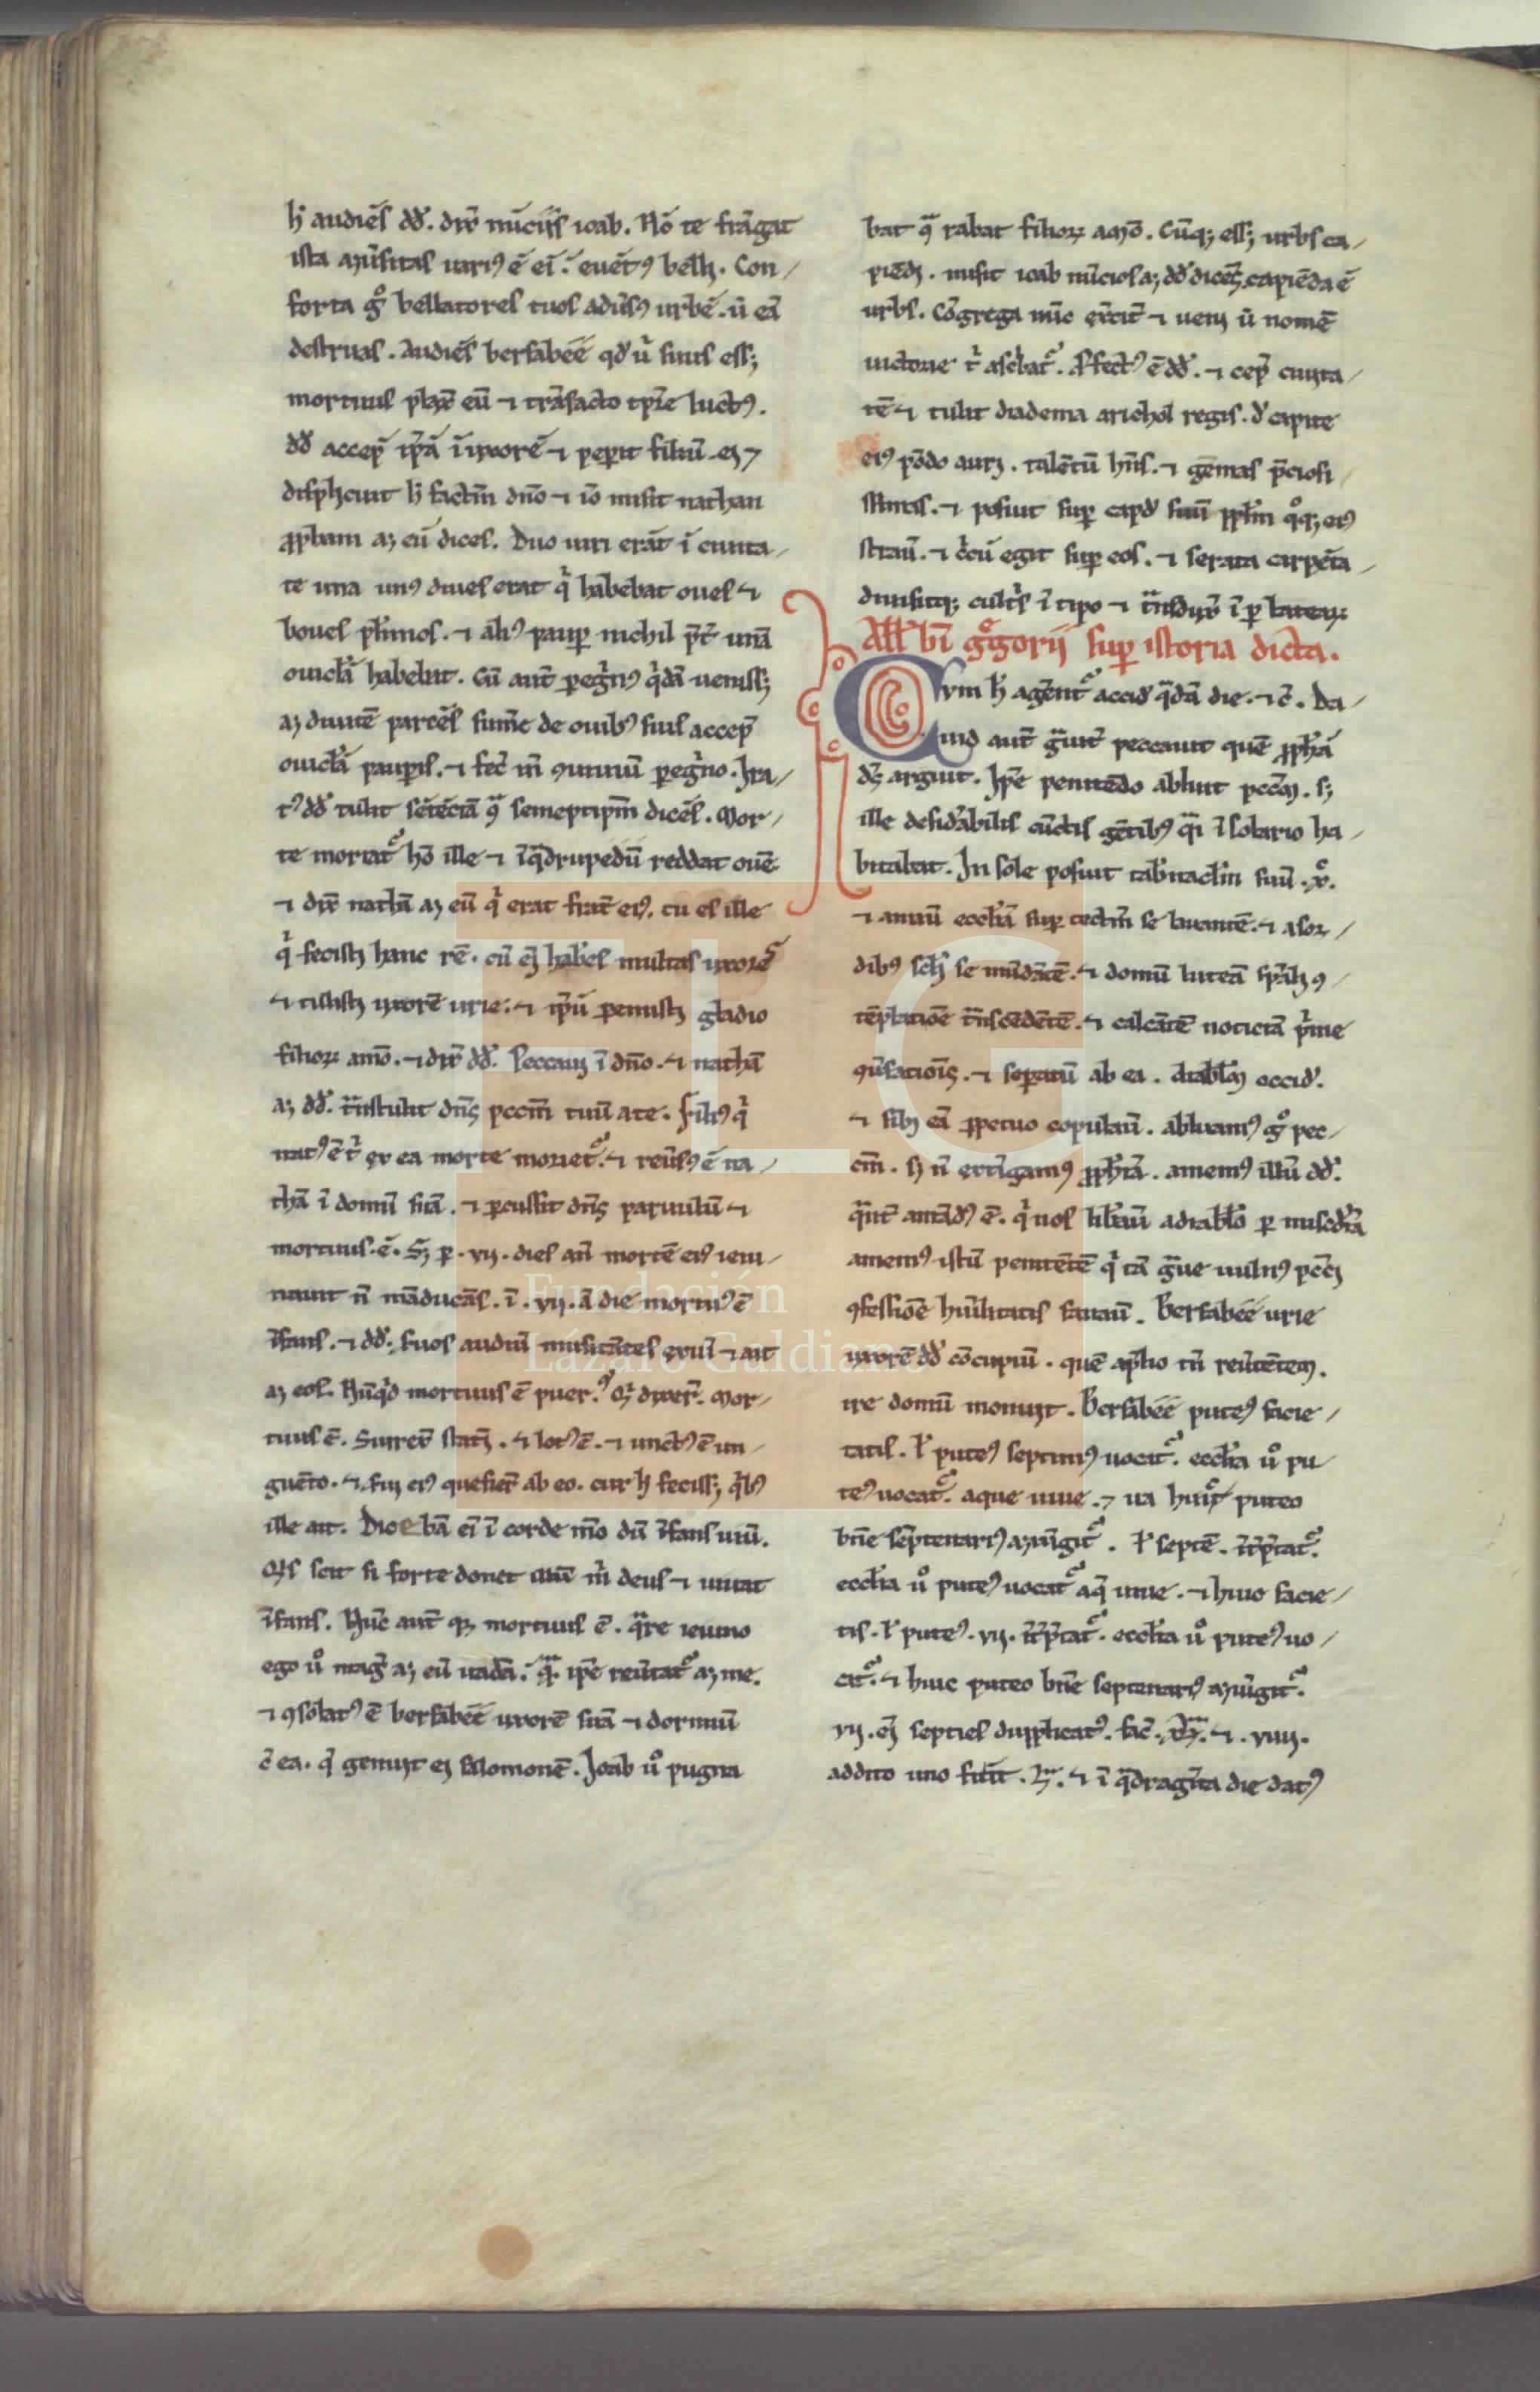 h̄ audiēs dd̄. dix̄ nūciis ioab. Nō te frāgat
ista aduersitas uari⁹ ē eī. euēt⁹ belli. Con/
forta g° bellatores tuos adūs⁹ urbē. ut eā
destruas. Audiēs bersabeē qd̄ uir suus ess;
mortuus plāx̄ eū ⁊ trāsacto tp̄re luct⁹.
dd̄ accep̄ ip̄ā ī uxorē ⁊ peperit filiū ei ⁊
displicuit h̄ factū dn̄o ⁊ iō misit nathan
ꝓph̄am ad eū dices. Duo uiri erāt ī ciuita/
te una un⁹ diues erat qⁱ habebat oues ⁊
boues pl̄imos. ⁊ ali⁹ paup̄ nichil p̄t̄ unā
ouiclā habebat. Cū aut̄ peregn⁹ qⁱdā ueniss;
ad diuitē parcēs sum̄e de ouib⁹ suis accep̄
ouiclā paup̄is. ⁊ fec̄ in̄ ꝯuiuiū peregn̄o. Ira/
t⁹ dd̄ tulit sētēciā ꝯ͛ᵃ semeptipm̄ dicēs. Mor/
te moriat᷑ hō ille ⁊ ī qᵃdrupedū reddat ouē
⁊ dix̄ nathā ad eū qⁱ erat frat̄ ei⁹. tu es ille
qⁱ fecisti hanc rē. cū eī habēs multas uxores
⁊ tulisti uxorē urie. ⁊ ip̄ū peremisti gladio
filiorꝝ amō. ⁊ dix̄ dd̄. Peccaui ī dn̄o. ⁊ nathā
ad dd̄. tᵃnstulit dn̄s pccm̄ tuū a te. Fili⁹ qⁱ
nat⁹ ē tⁱ ex ea morte moriet᷑. ⁊ reūs⁹ ē na/
thā ī domū suā. ⁊ percussit dn̄s paruulū ⁊
mortuus. ē. S; ꝑ. vii. dies an̄ mortē ei⁹ ieiu/
nauit n̄ māducās. ī. vii. ā die mortu⁹ ē
īfans. ⁊ dd̄. suos audiuī musitātes exuit ⁊ ait
ad eos. Nūqⁱd mortuus ē puer. Qⁱ dixer̄. Mor/
tuus ē. Surrex̄ statī. ⁊ lot⁹ ē. ⁊ unct⁹ ē un/
guēto. ⁊ sui ei⁹ quesier̄ ab eo. cur h̄ feciss; qⁱb⁹
ille ait. Dicebā eī ī corde meo dū īfans uiū.
Qⁱs scit si forte donet illū mⁱ deus ⁊ uiuat
īfans. Nūc aut̄ qꝫ mortuus ē. qᵃre ieiuno
ego u° magis ad eū uadā. qᵃ ip̄e reūtat᷑ ad me.
⁊ ꝯsolat⁹ ē bersabeē uxorē suā ⁊ dormiuī
c̄ ea. qⁱ genuit ei salomonē. Joab u° pugna
bat ꝯ͛ᵃ rabat filiorꝝ amō. Cūqꝫ ess; urbs ca/
piēdi. misit ioab nūcios ad dd̄ dicēs capiēda ē
urbs. Cōgrega nūc exercit̄ ⁊ ueni ut nomē
uictorie tⁱ ascⁱbat᷑. Pfect⁹ ē dd̄. ⁊ cep̄ ciuita/
tē ⁊ tulit diadema arichol regis. de capite
ei⁹ pōdo auri. talētū hn̄s. ⁊ gēmas p̄ciosi/
ssimas. ⁊ posuit suꝑ capd̄ suū pp̄lm̄ q°qꝫ ei⁹
strauī. ⁊ cⁱcū egit suꝑ eos. ⁊ serrata carpēta/
diuisitqꝫ cultⁱs ī tipo ⁊ tᵃnsdux̄ ī ꝑ laterꝝ.
All̄ bī g°gorii suꝑ istoria dicta.
Cum h̄ agerent᷑ accid̄ qᵃdā die. ⁊ c̄. Da/
uid aut̄ gᵃuit̄ peccauit quē ꝓph̄ā
ds̄ arguit. Ip̄e penitēdo abluit pccā. s;
ille desidᵃbilis cūctis gētib⁹ qⁱ ī solario ha/
bitabat. In sole posuit tabn̄aclm̄ suū. xp̄.
⁊ amauī eccliā suꝑ tectū se lauantē. ⁊ a sor/
dib⁹ scl̄i se mūdātē. ⁊ domū luteā sp̄āli ꝯ/
tēplatioē tᵃnscēdētē. ⁊ calcātē noticiā pⁱme
ꝯūsationis. ⁊ separatū ab ea. diabl̄m occid̄.
⁊ sibi eā ꝑpetuo copulauī. abluam⁹ g° pec/
cm̄. s; n̄ extīgam⁹ ꝓph̄iā. amem⁹ illū dd̄.
qᵃnt̄ amād⁹ ē. qⁱ nos liberauī a diabl̄o ꝑ misc̄diā
amem⁹ istū penitētē qⁱ tā gᵃue uuln⁹ pccī
ꝯfessiōe hūilitatis sanauī. Bersabeē urie
uxorē dd̄ cōcupiuī. quē aplio tn̄ reūtētem.
ire domū monuit. Bersabeē pute⁹ sacie/
tatis. l̄ pute⁹ septim⁹ uocat᷑. ecclīa u° pu
te⁹ uocat᷑. aque uiue. ⁊ ua huic puteo
bn̄e septenari⁹ adiūgit᷑. l̄ septē. int̄p̄tat᷑.
ecclīa u° pute⁹ uocat᷑ aq̄ uiue. ⁊ huic sacie/
tis. l̄ pute⁹. vii. int̄p̄tat᷑. ecclīa u° pute⁹ uo/
cat᷑. ⁊ huic puteo bn̄e septenari⁹ adiūgit᷑.
vii. eī septies dupplicat⁹. fac̄. ⁊. viiii.
addito uno fuit. L. ⁊ ī qᵃdragīta die dat⁹